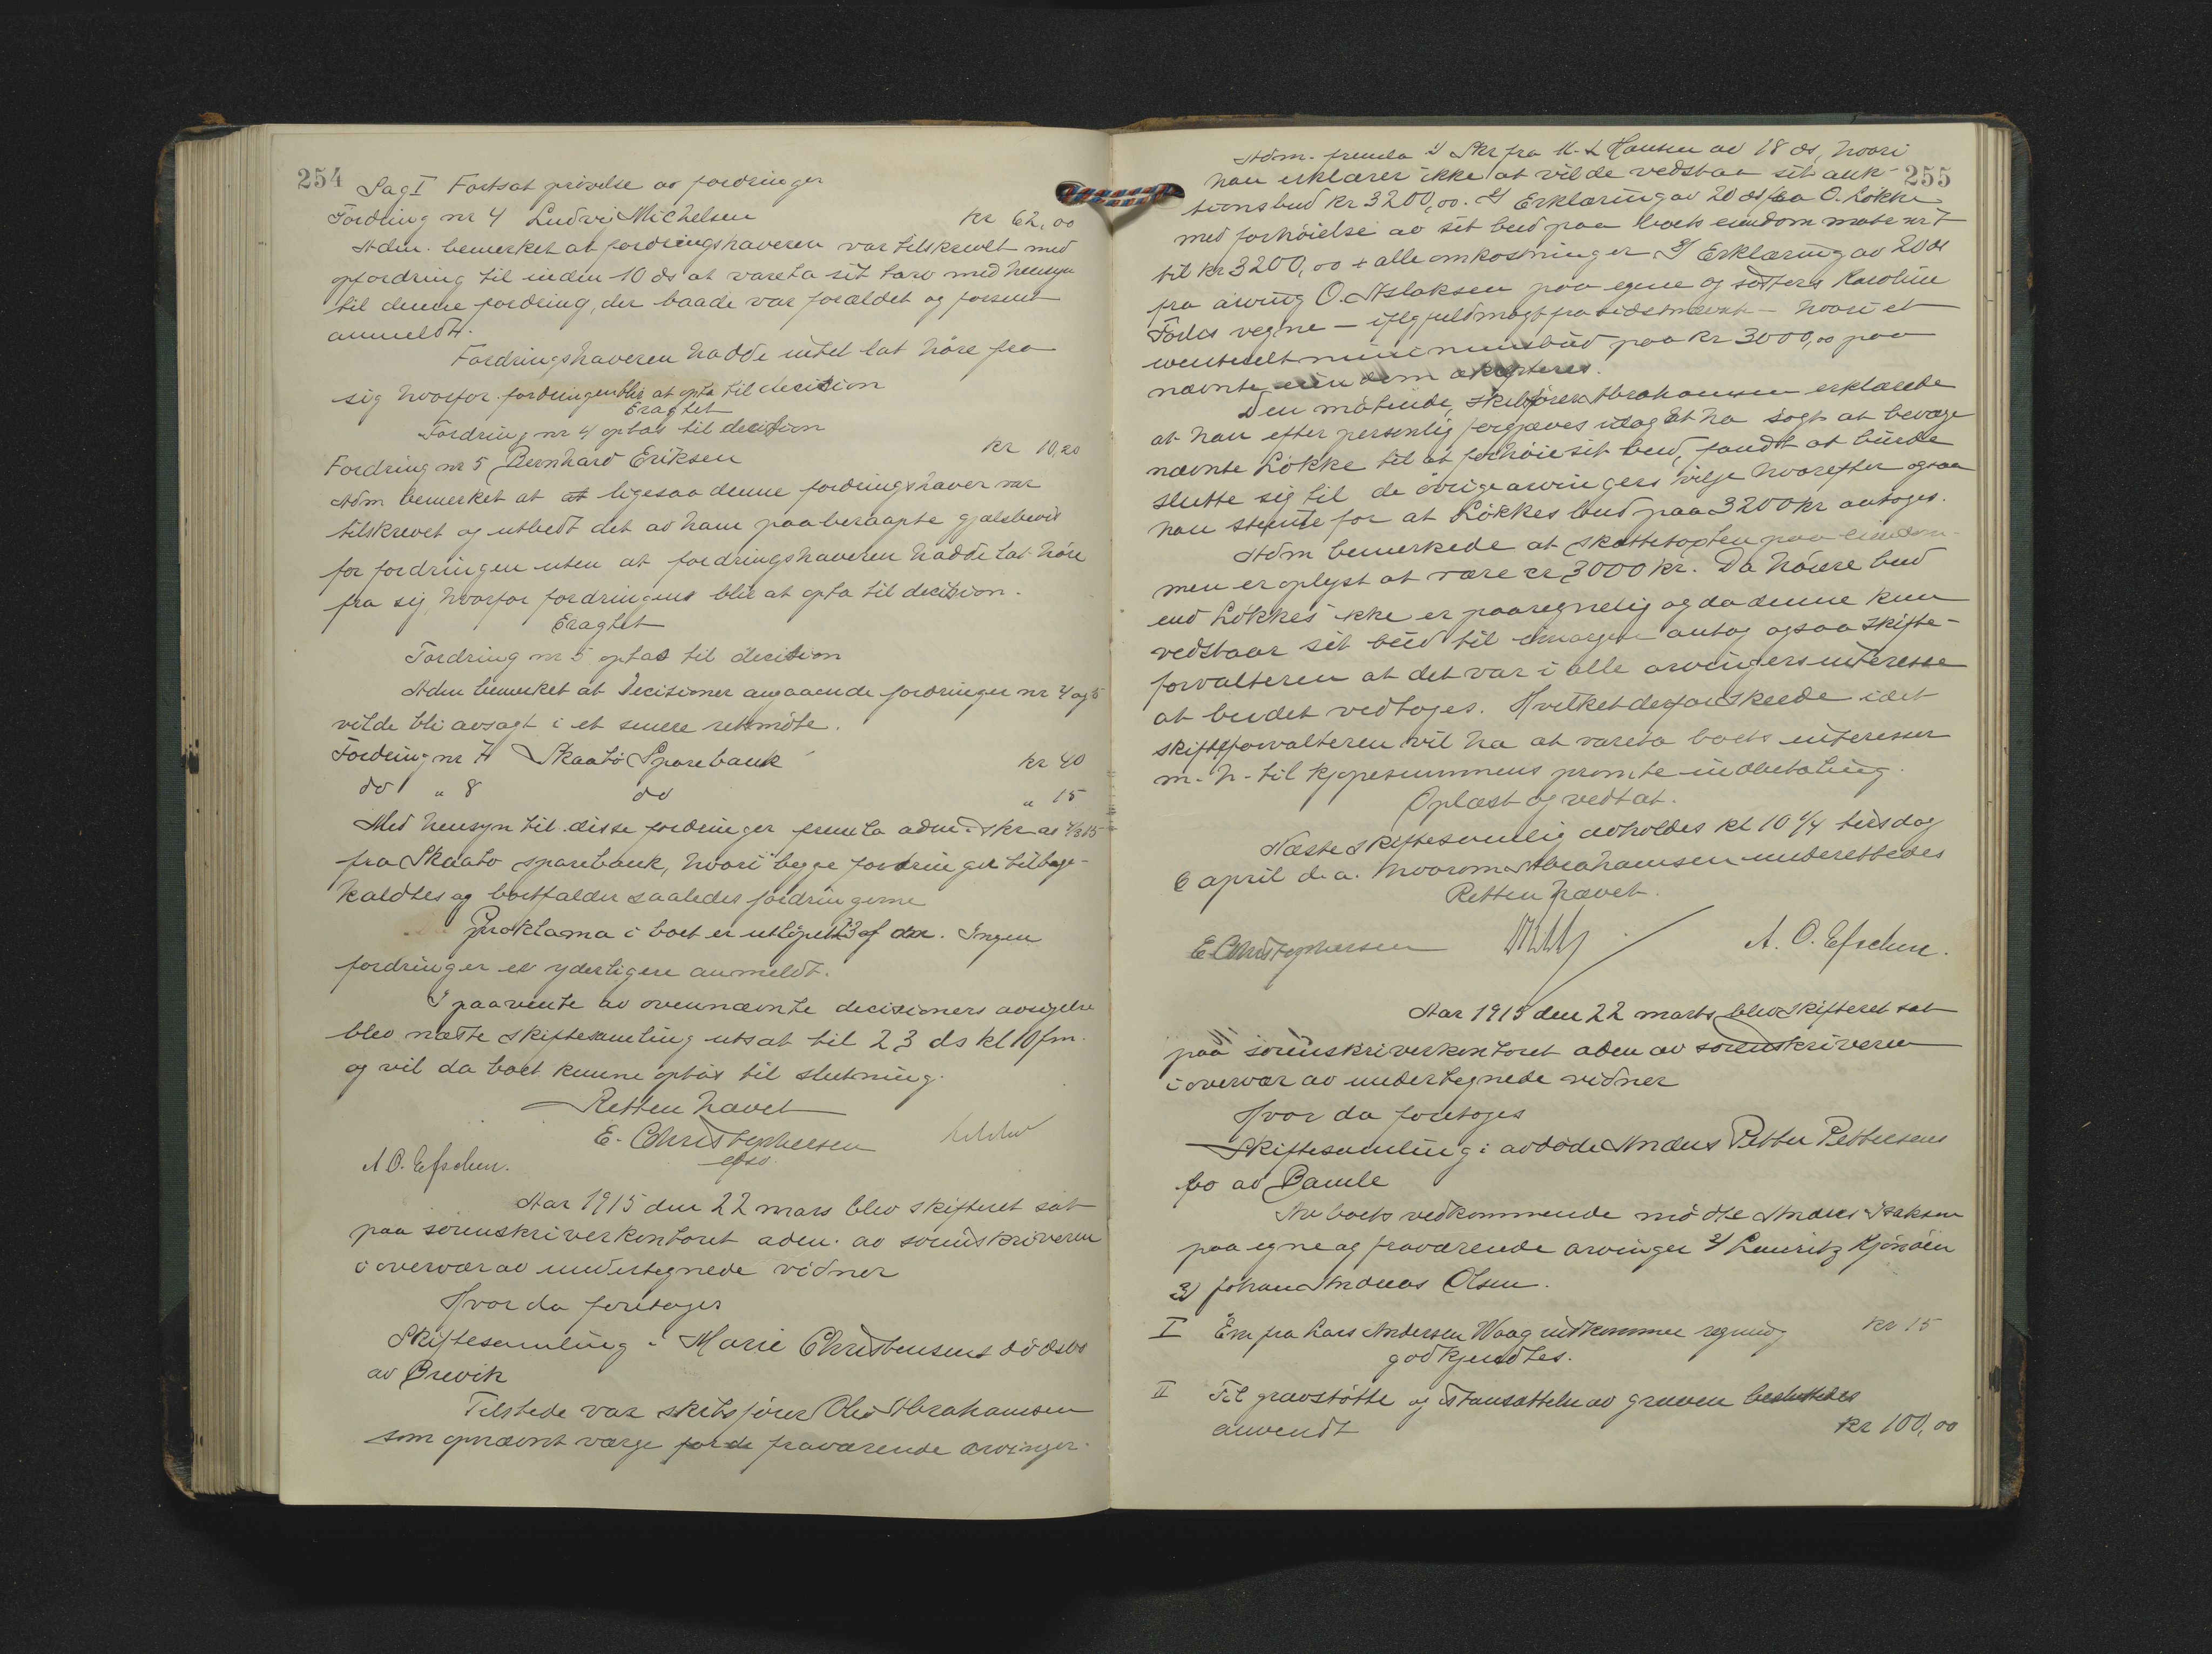 254
Sag I Fortsat prövelse av fordringer
Fordring nr 4 Ludvi Michelsen kr 62,00
Adm. bemerket at fordringshaveren var tilskrevet med
opfordring til inden 10 ds at vareta sit tarv med hensyn
til denne fordring, der baade var forældet og forsent
anmeldt.
Fordringshaveren hadde intet lat höre fra
sig hvorfor fordringen blir at opta til decision
Eragtet
Fordring nr 4 optas til decision
Fordring nr 5 Bernhard Eriksen kr 10,20
Adm bemerket at at ligesaa denne fordringshaver var
tilskrevet og utbedt det av ham paaberaapte gjælsbevis
for fordringen uten at fordringshaveren hadde lat höre
fra sig, hvorfor fordringens blir at opta til decision.
Eragtet
Fordring nr 5 optas til decision
Adm bemerket at decisioner angaaende fordringer nr 4 og 5
vilde bli avsagt i et senere retsmöte.
Fordring nr 7 Skaatö Sparebank kr 40
do " 8 do " 15
Med hensyn til disse fordringer fremla adm. skr av 4/3 15
fra Skaatö sparebank, hvori begge fordringer tilbage-
kaldtes og bortfalder saaledes fordringerne
Proklama i boet er utlöpet 13 Ingen
fordringer er yderligere anmeldt.
I paavente av ovennævnte decisioners avsigelse
blev næste skiftesamling utsat til 23 ds kl 10 fm.
og vil da boet kunne optas til slutning.
Retten hævet
E. Christophersen
A O. Efschen.
Aar 1915 den 22 mars blev skifteret sat
paa sorenskriverkontoret adm. av sorenskriveren
i overvær av undertegnede vidner
Hvor da foretoges
Skiftesamling i Marie Christensens dödsbo
av Brevik
Tilstede var skibsförer Ole Abrahamsen
som opnævnt værge for de fraværende arvinger.
255
Adm. fremla 1) Skr fra M. L Hansen av 18 ds, hvori
han erklærer ikke at vilde vedstaa sit auk-
tionsbud kr 3200,00. 2) Erklæring av 20 ds fra O. Lökke
med forhöielse av sit bud paa boets eiendom matr nr 7
til kr 3200,00 + alle omkostninger 3) Erklæring av 20 ds
fra arving O. Aslaksen paa egene og sösters Karoline
Fodes vegne — iflg fuldmagt fra sidstnævnte — hvori et
eventuelt minimumsbud paa kr 3000,00 paa
nævnte eiendom aksepteres.
Den mötende, skibsförer Abrahamsen erklærede
at han efter personlig forgjæves at ha sögt at bevæge
nævnte Lökke til at forhöie sit bud, fandt at burde
slutte sig til de övrige arvingers vilje hvorefter ogsaa
han stemte for at Lökkes bud paa 3200 kr antoges.
Adm bemerkede at skattetaxten paa eiendom-
men er oplyst at være cr 3000 kr. Da höiere bud
end Lökkes ikke er paaregnelig og da denne kun
vedstaar sit bud til imorgen antog ogsaa skifte-
forvalteren at det var i alle arvingers interesse
at budet vedtoges. Hvilket derfor skeede idet
skifteforvalteren vil ha at vareta boets interesser
m. h. til kjøpesummens promte indbetaling.
Oplæst og vedtat.
Næste skiftesamlig avholdes kl 10 1/4 tirsdag
6 april d. a. hvorom Abrahamsen underettedes
Retten hævet.
E Christophersen A. O. Efschen.
Aar 1915 den 22 marts blev skifteret sat
paa sorenskriverkontoret adm av sorenskriveren
i overvær av undertegnede vidner
Hvor da foretoges
Skiftesamling i avdöde Anders Petter Pettersens
bo av Bamle
Av boets vedkommende mödte Anders Isaksen
paa egne og fraværende arvinger 2) Lauritz Kjönöen
3) Johan Andreas Olsen.
I En fra Lars Andersen Waag indkommen regning kr 15
godkjendtes.
II Til gravstötte og istansættelse av graven besluttedes
anvendt kr 100,00